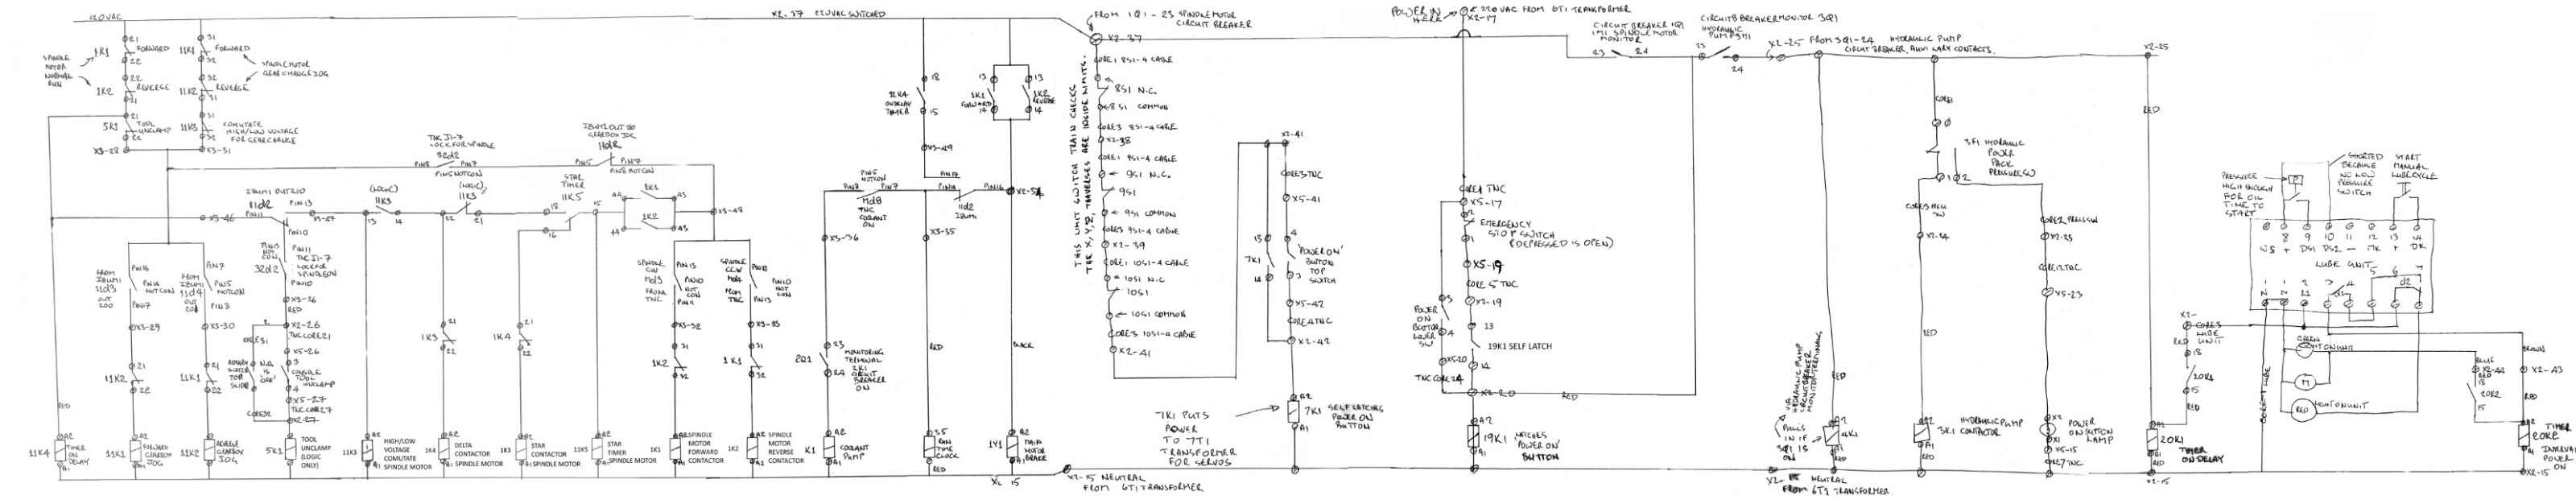 220VAC
X2-37 220VAC SWITCHED
FROM 1Q1-23 SPINDLE MOTOR
CIRCUIT BREAKER
X2-37
POWER IN
HERE
220 VAC FROM 6T1 TRANSFORMER
X2-17
CIRCUIT BREAKER 1Q1
1M1 SPINDLE MOTOR
MONITOR
23
24
CIRCUIT BREAKER MONITOR 3Q1
HYDRAULIC
PUMP 3M1
23
24
X2-25 FROM 3Q1-24 HYDRAULIC PUMP
CIRCUIT BREAKER, AUXILIARY CONTACTS.
X2-25
SPINDLE
MOTOR
NORMAL
RUN
1K1
21
FORWARD
22
22
1K2
REVERSE
21
11K1
31
FORWARD
32
32
11K2
REVERSE
31
SPINDLE MOTOR
GEAR CHANGE JOG
21
5K1
TOOL
UNCLAMP
22
X3-28
31
11K3
COMUTATE
HIGH/LOW VOLTAGE
FOR GEARCHANGE
32
X3-31
TNC J1-7
LOCK FOR SPINDLE
32d2
PIN8
PIN7
PIN5 NOTCON
PIN5
11d2
PIN7
PIN8 NOTCON
IZUMI OUT 210
11d2
PIN11
PIN13
PIN10
X3-46
X3-47
(LOGIC)
11K3
13
14
(LOGIC)
11K3
22
21
STAR
TIMER
11K5
18
15
16
44
1K1
43
44
1K2
43
X3-48
FROM
IZUMI
11d3
OUT
200
PIN14
NOTCON
X3-29
21
11K2
22
FROM
IZUMI
11d4
OUT
PIN5
NOTCON
X3-30
21
11K1
22
NOT
CON
32d2
PIN11
TNC J1-7
LOCK FOR
SPINDLE ON
PIN10
X3-26
RED
X2-26
TNC CORE 21
CORE 31
X5-26
3
ROTARY
SWITCH
TOP
SLIDE
N.O.
IS
'OFF'
CONSOLE
TOOL
UNCLAMP
4
X5-27
TNC CORE 27
CORE 32
X2-27
21
1K3
22
21
1K4
22
SPINDLE
CW
Md3
FROM
TNC
PIN13
PIN10
NOT
CON
PIN11
X3-32
31
1K2
32
SPINDLE
CCW
Md4
FROM
TNC
PIN10
NOT
CON
PIN13
X3-33
31
1K1
32
18
11K4
ON DELAY
TIMER
15
X3-49
13
1K1
FORWARD
14
13
1K2
REVERSE
14
PIN5
NOTCON
PIN8
PIN7
Md8
TNC
COOLANT
ON
PIN14
PIN16
11d2
IZUMI
X2-54
X3-36
X3-35
23
2Q1
24
MONITORING
TERMINAL
2K1
CIRCUIT
BREAKER
ON
RED
BLACK
RED
A2
11K4
TIMER
ON
DELAY
A1
A2
11K1
FORWARD
GEARBOX
JOG
A1
A2
11K2
REVERSE
GEARBOX
JOG
A2
5K1
TOOL
UNCLAMP
(LOGIC
ONLY)
A1
A2
11K3
HIGH/LOW
VOLTAGE
COMUTATE
A1 SPINDLE MOTOR
A2
1K4
DELTA
CONTACTOR
A1 SPINDLE MOTOR
A2
1K3
STAR
CONTACTOR
A1 SPINDLE MOTOR
A2
11K5
STAR
TIMER
A1 SPINDLE MOTOR
A2 SPINDLE
MOTOR
1K1
FORWARD
A1 CONTACTOR
A2 SPINDLE
MOTOR
1K2
REVERSE
A1 CONTACTOR
A2
K1
COOLANT
PUMP
A1
35
RUN
TIME
CLOCK
RED
A2
1Y1
MAIN
MOTOR
BRAKE
A1
X2 15
X2-15 NEUTRAL
FROM 6T1 TRANSFORMER
THIS LIMIT SWITCH TRAIN CHECKS
THE X,Y,Z, TRAVERSES ARE INSIDE LIMITS.
CORE 1 8S1-4 CABLE
8S1 N.C.
8S1 COMMON
CORE 3 8S1-4 CABLE
X2-38
CORE 1 9S1-4 CABLE
9S1 N.C.
9S1
9S1 COMMON
CORE 3 9S1-4 CABLE
X2-39
CORE 1 10S1-4 CABLE
10S1 N.C
10S1
10S1 COMMON
CORE 3 10S1-4 CABLE
X2-41
X2-41
CORE 3 TNC
X5-41
13
7K1
14
4
'POWER ON'
BUTTON
TOP
SWITCH
3
X5-42
CORE 4 TNC
X2-42
7K1 PUTS
POWER
TO 7T1
TRANSFORMER
FOR SERVOS
A2
7K1
SELF LATCHES
POWER ON
BUTTON
A1
CORE 1 TNC
X5-17
2
EMERGENCY
STOP SWITCH
(DEPRESSED IS OPEN)
1
X5-19
CORE 5 TNC
X2-19
13
19K1 SELF LATCH
14
POWER
ON
BUTTON
LOWER
SW
3
4
X5-20
TNC CORE 24
X2-20
RED
A2
19K1
LATCHES
'POWER ON'
BUTTON
A1
RED
VIA
HYDRAULIC PUMP
CIRCUIT BREAKER
MONITOR TERMINALS
PULLS
IN IF
3Q1 IS
ON
4K1
A1
RED
X2-15 NEUTRAL
FROM 6T1 TRANSFORMER
CORE 1
3F1 HYDRAULIC
POWER
PACK
PRESSURE SW
1
2
X2-24
RED
A2
3K1
HYDRAULIC PUMP
CONTACTOR
A1
RED
CORE 2 PRESS SW
X2-23
CORE 12 TNC
X5-23
X2
POWER
ON BUTTON
LAMP
X1
X5-15
CORE 7 TNC
RED
A2
20K1
A1
RED
TIMER
ON DELAY
X2-15
PRESSURE
HIGH ENOUGH
FOR OIL
TIME TO
START
SHORTED
BECAUSE
NO LOW
PRESSURE
SWITCH
START
MANUAL
LUBE CYCLE
8 9 10 11 12 13 14
WS + DS1 DS2 - MK + DK
LUBE UNIT
X2-
CORE 3
LUBE
UNIT
RED
18
20K1
15
RED
CORE 1 LUBE
GREEN
LIGHT ON UNIT
M
RED
LIGHT ON UNIT
BLUE
X2-44
RED
18
20K2
15
BROWN
X2-43
RED
A2
20K2
TIMER
INTERVAL
POWER
ON
A1
X2-15